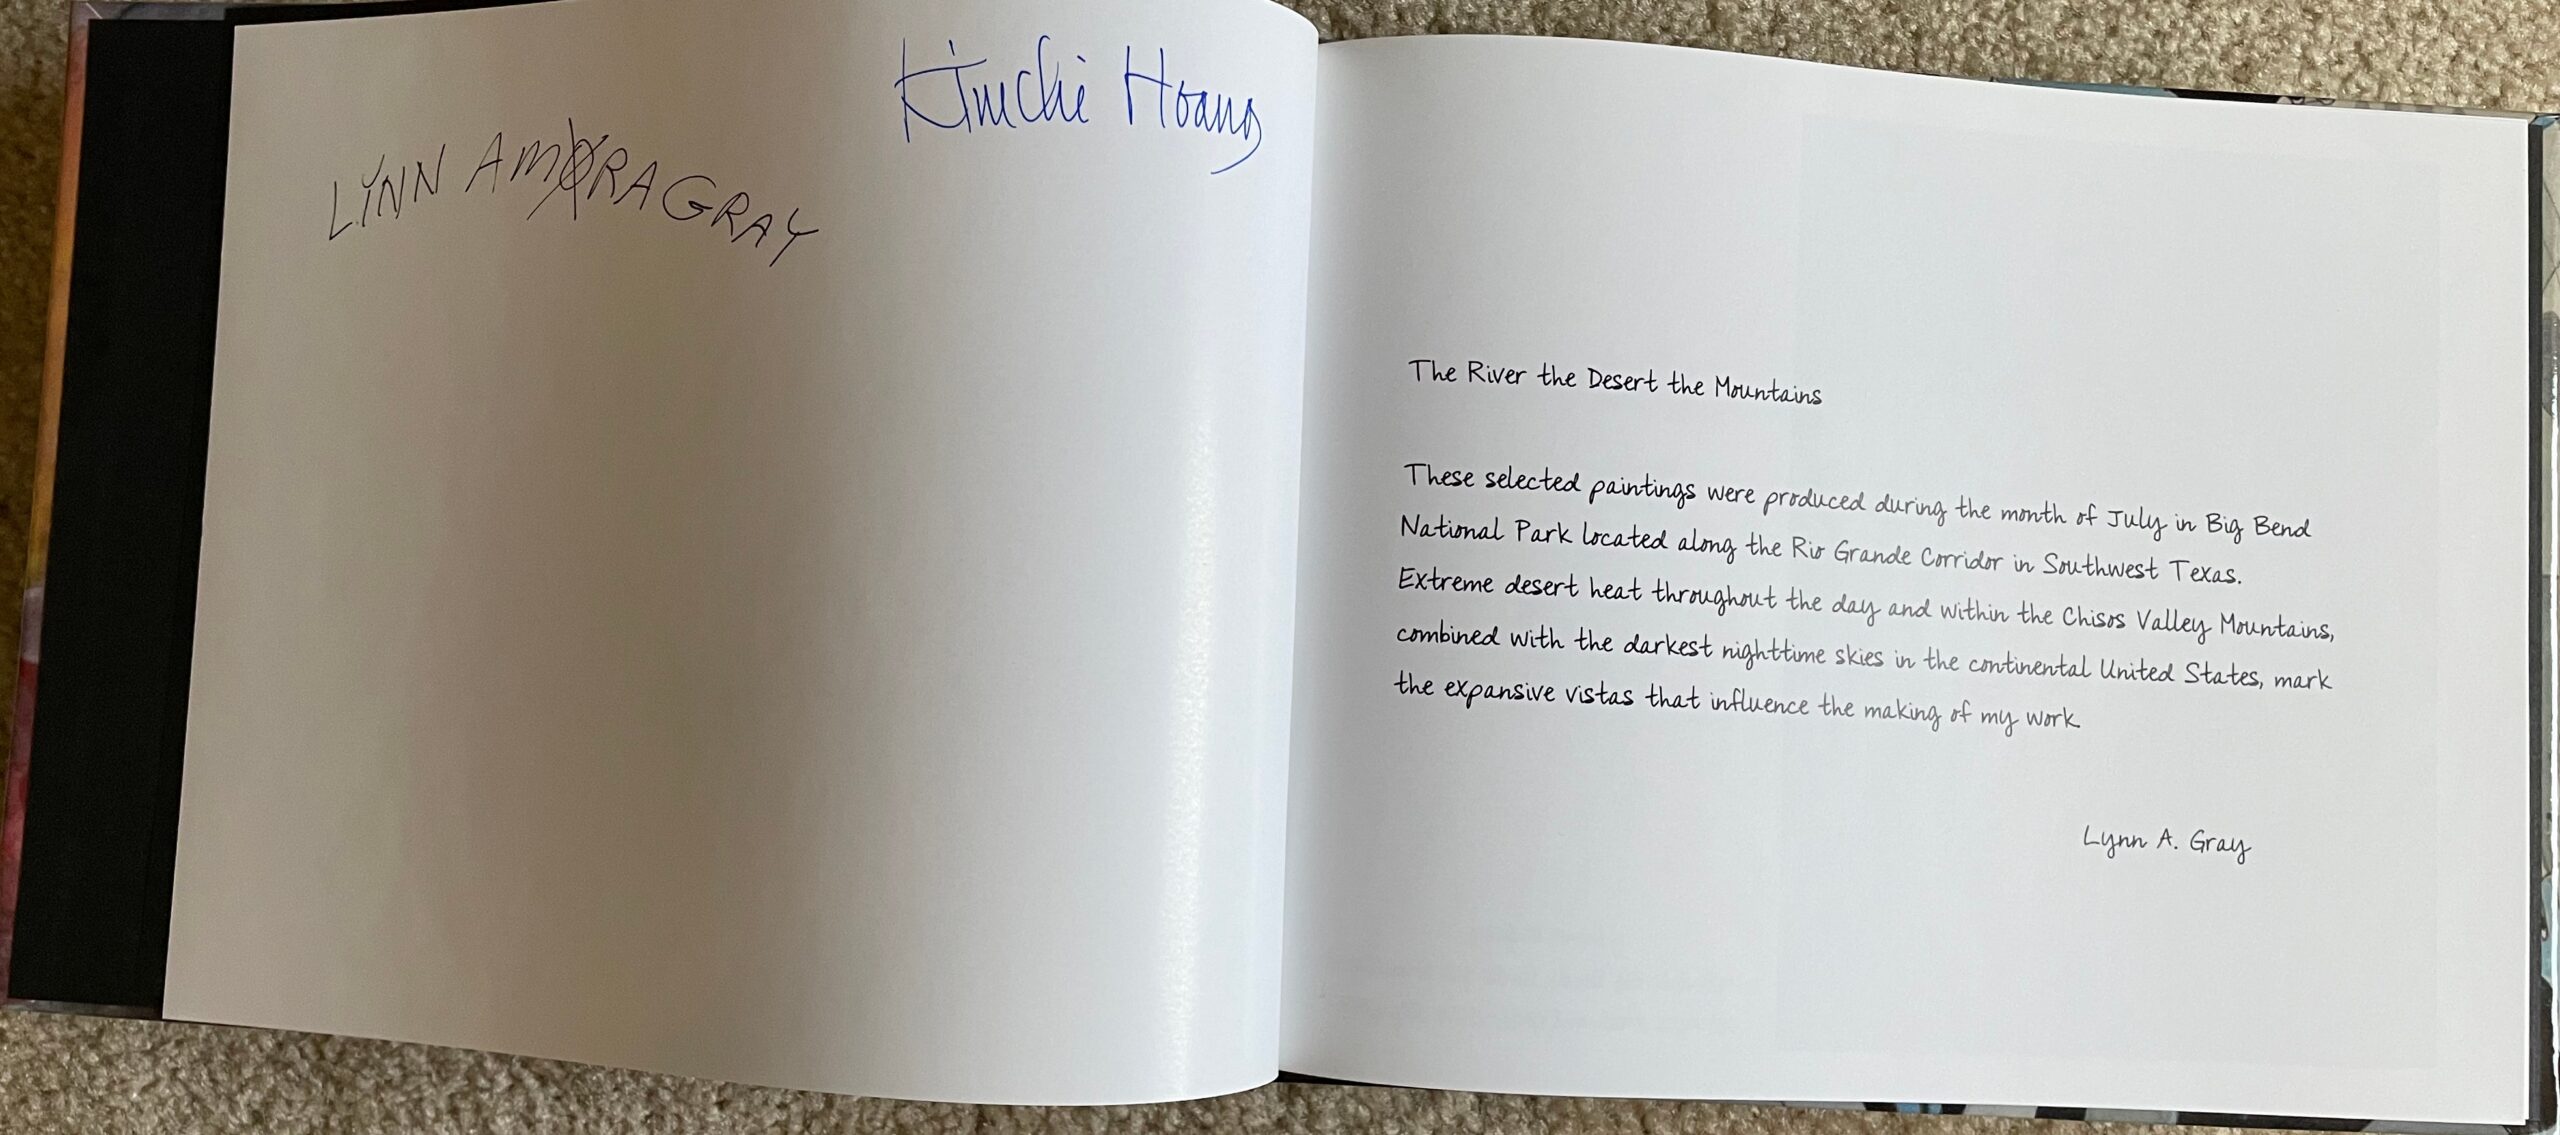 Kimchi Hoang
LYNN AMORA GRAY
The River the Desert the Mountains
These selected paintings were produced during the month of July in Big Bend
National Park located along the Rio Grande Corridor in Southwest Texas.
Extreme desert heat throughout the day and within the Chisos Valley Mountains,
combined with the darkest nighttime skies in the continental United States, mark
the expansive vistas that influence the making of my work.
Lynn A. Gray